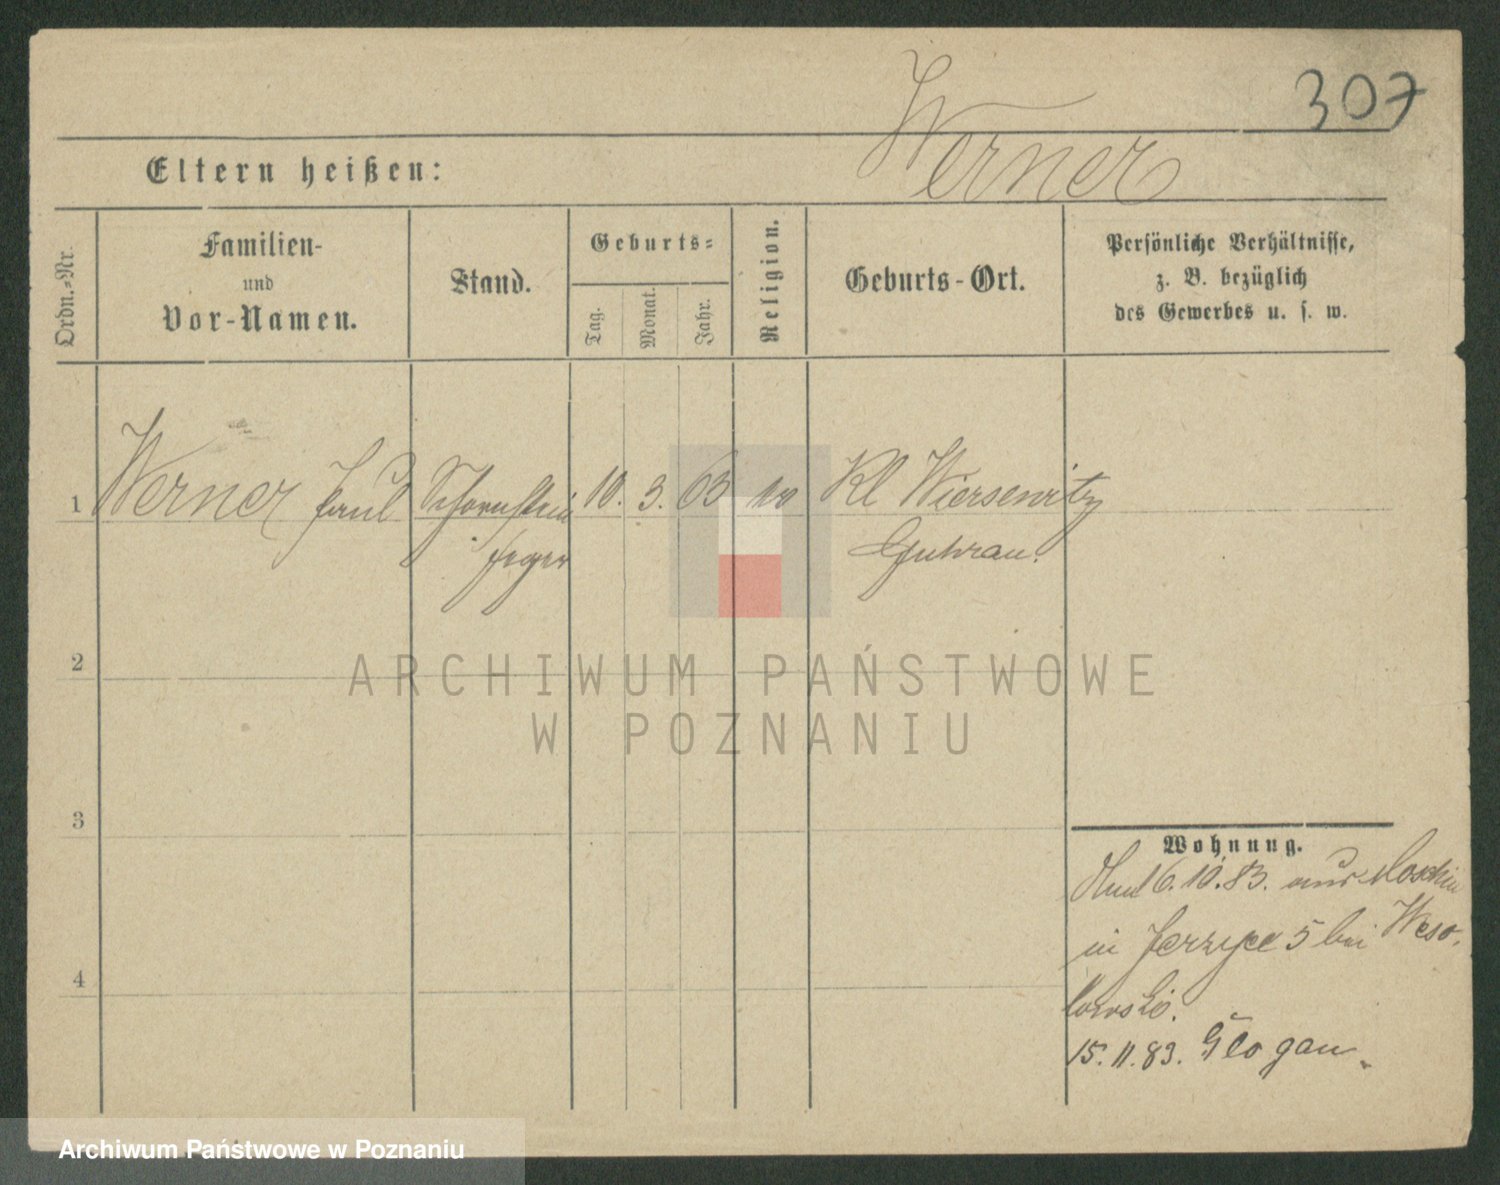 307
Werner
Eltern heißen:
Ordn.-Nr.
Familien-
und
Vor-Namen.
Stand.
Geburts-
Tag.
Monat.
Jahr.
Religion.
Geburts-Ort.
Persönliche Verhältnisse,
z. B. bezüglich
des Gewerbes u. s. w.
1 Werner Paul Schornstein 10. 3. 63 Kl Wiersewitz
feger Guhrau.
2
3
4
Wohnung.
16.10.83. aus Moschin
in Jerzyce 5 bei Weso-
lowski.
15.11.83. Glogau.
ARCHIWUM PAŃSTWOWE
W POZNANIU
Archiwum Państwowe w Poznaniu